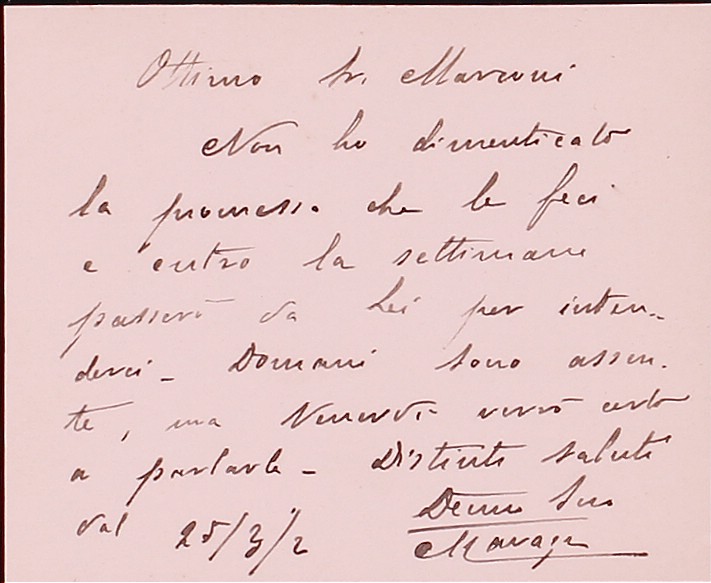 Ottimo Sr. Marconi
Non ho dimenticato
la promessa che le feci
e entro la settimana
passerò da Lei per inten-
derci - Domani sono assen-
te, ma Venerdì verrò certo
a parlarle - Distinti saluti
dal 25/3/2 Suo